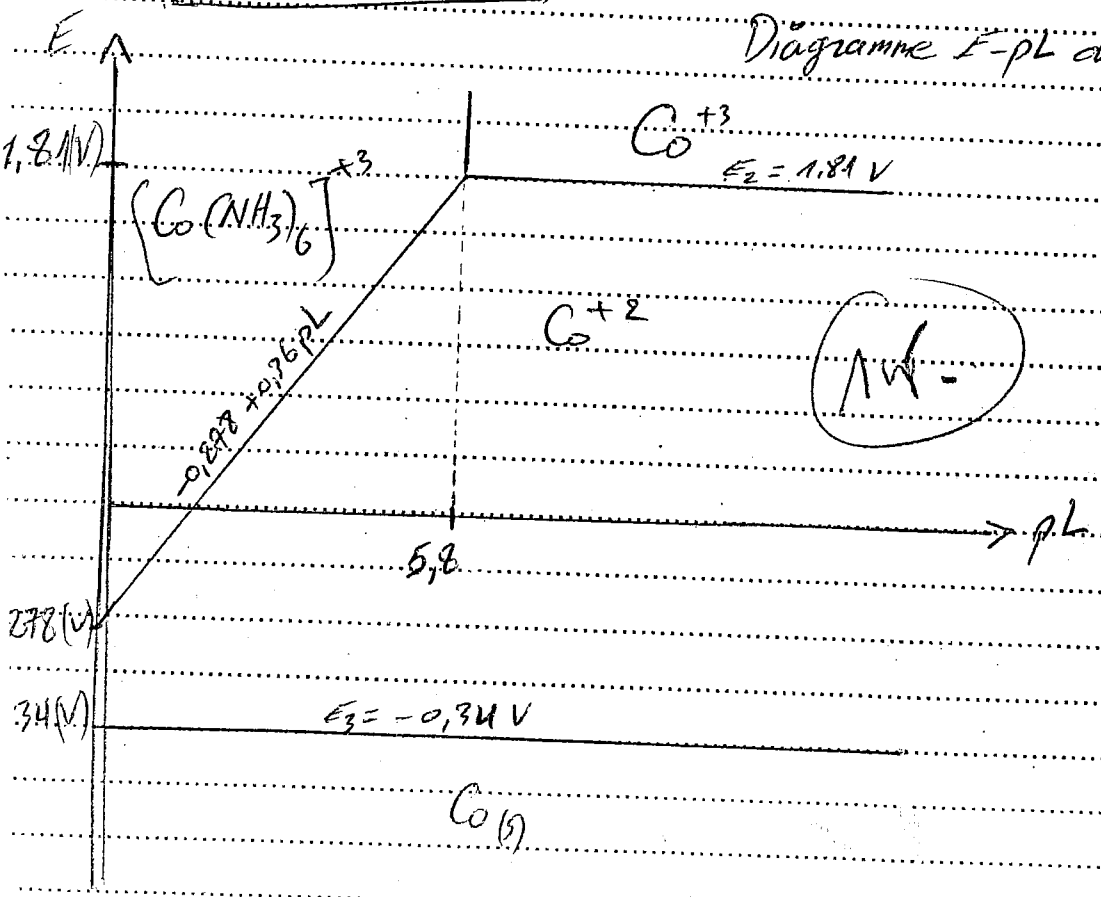 Diagramme E-pL
E
1,81(V)
Co⁺³
E₂ = 1.81 V
[Co(NH₃)₆]⁺³
Co⁺²
+0,36pL
pL
5,8
278(V)
34(V)
E₃ = -0,34 V
Co(s)